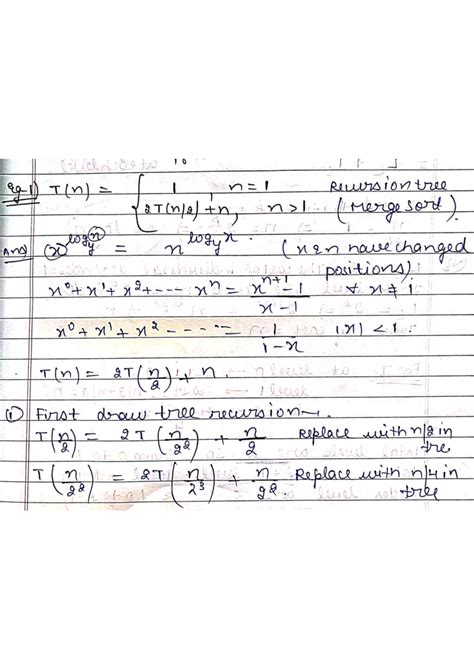 Eg-1) T(n) = { 1, n=1 Recursion tree
2T(n/2)+n, n>1 (Merge sort)
Ans) x^log_y n = n^log_y x. (x & n have changed
positions)
x^0 + x^1 + x^2 + --- x^n = (x^(n+1) - 1)/(x-1) ∀ x ≠ 1
x^0 + x^1 + x^2 ------ = 1/(1-x) |x| < 1
T(n) = 2T(n/2) + n
(i) First draw tree recursion
T(n/2) = 2T(n/2^2) + n/2 Replace with n/2 in
tre
T(n/2^2) = 2T(n/2^3) + n/2^2 Replace with n/4 in
tree